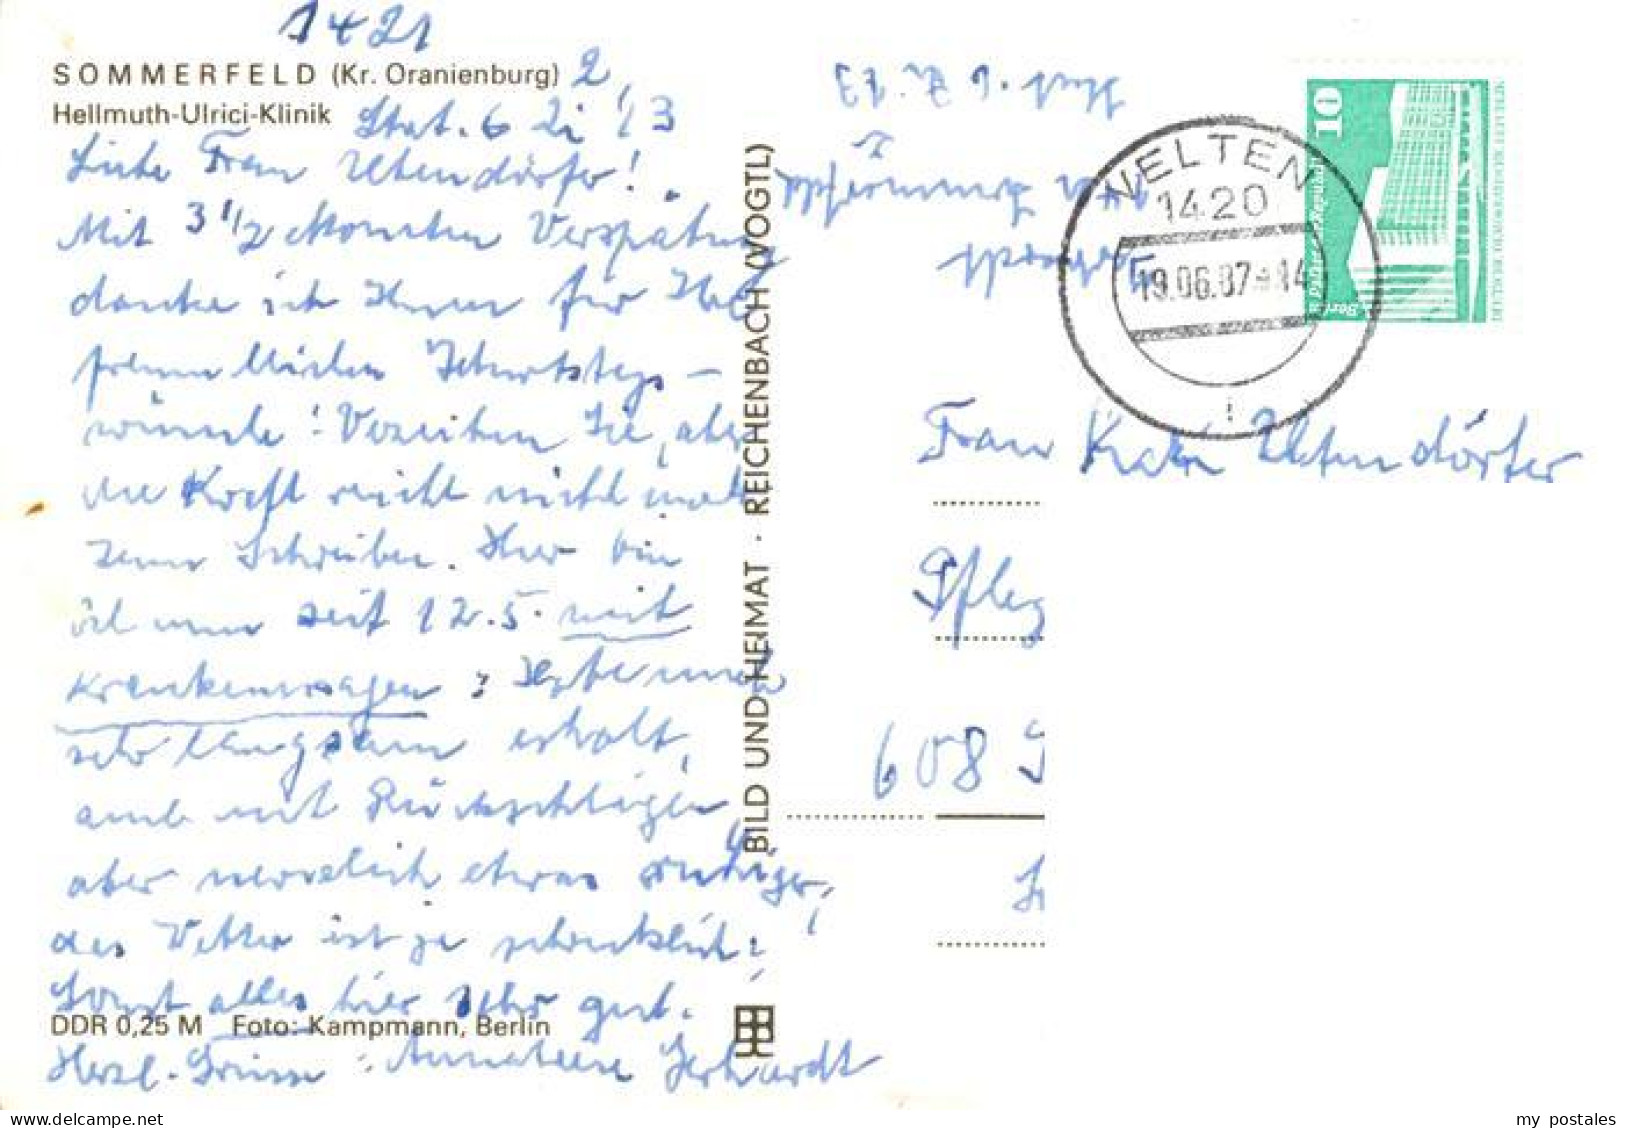 1421
SOMMERFELD (Kr. Oranienburg) 2
Hellmuth-Ulrici-Klinik Stat. 6 Zi 13
Liebe Frau Utendörfer!
Mit 3 1/2 Monaten Verspätung
danke ich Ihnen für Ihre
freundlichen Geburtstags-
wünsche! Verzeihen Sie, aber
die Kraft reicht nicht mehr
zum Schreiben. Hier bin
ich nun seit 12.5. mit
Krankenwagen: Habe mich
sehr langsam erholt,
auch mit Rückschlägen
aber nervlich etwas ruhiger,
das Wetter ist ja schrecklich:
Sonst alles hier sehr gut.
DDR 0,25 M Foto: Kampmann, Berlin
Herzl. Grüsse: Anneliese Gerhardt
BILD UND HEIMAT · REICHENBACH (VOGTL)
Stat. 6 Zi. 13
VELTEN
1420
19.06.87-14
10
Frau Utendörfer
Pfleg
608
my postales